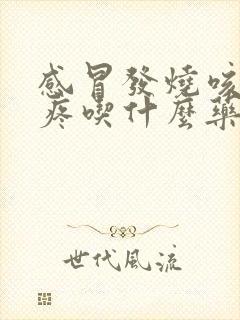 感冒發燒咳
疼喫什麼藥
世代風流